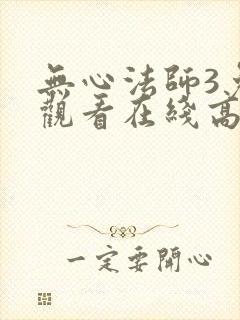 無心法師3
觀看在綫高
一定要開心